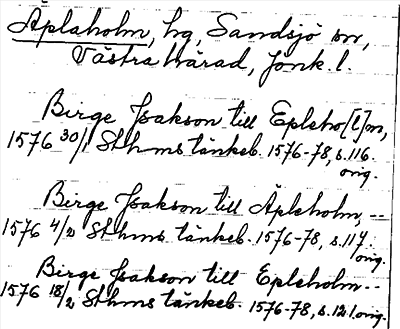 Äplaholm, hg, Sandsjö sn,
Västra härad, Jönk. l.
Birge Isakson till Epleho[l]m,
1576 30/1 Sthms tänkeb. 1576-78, s. 116.
orig.
Birge Isakson till Äpleholm, --
1576 4/2 Sthms tänkeb. 1576-78, s. 117.
orig.
Birge Isakson till Epleholm --
1576 18/2 Sthms tänkeb. 1576-78, s. 121. orig.